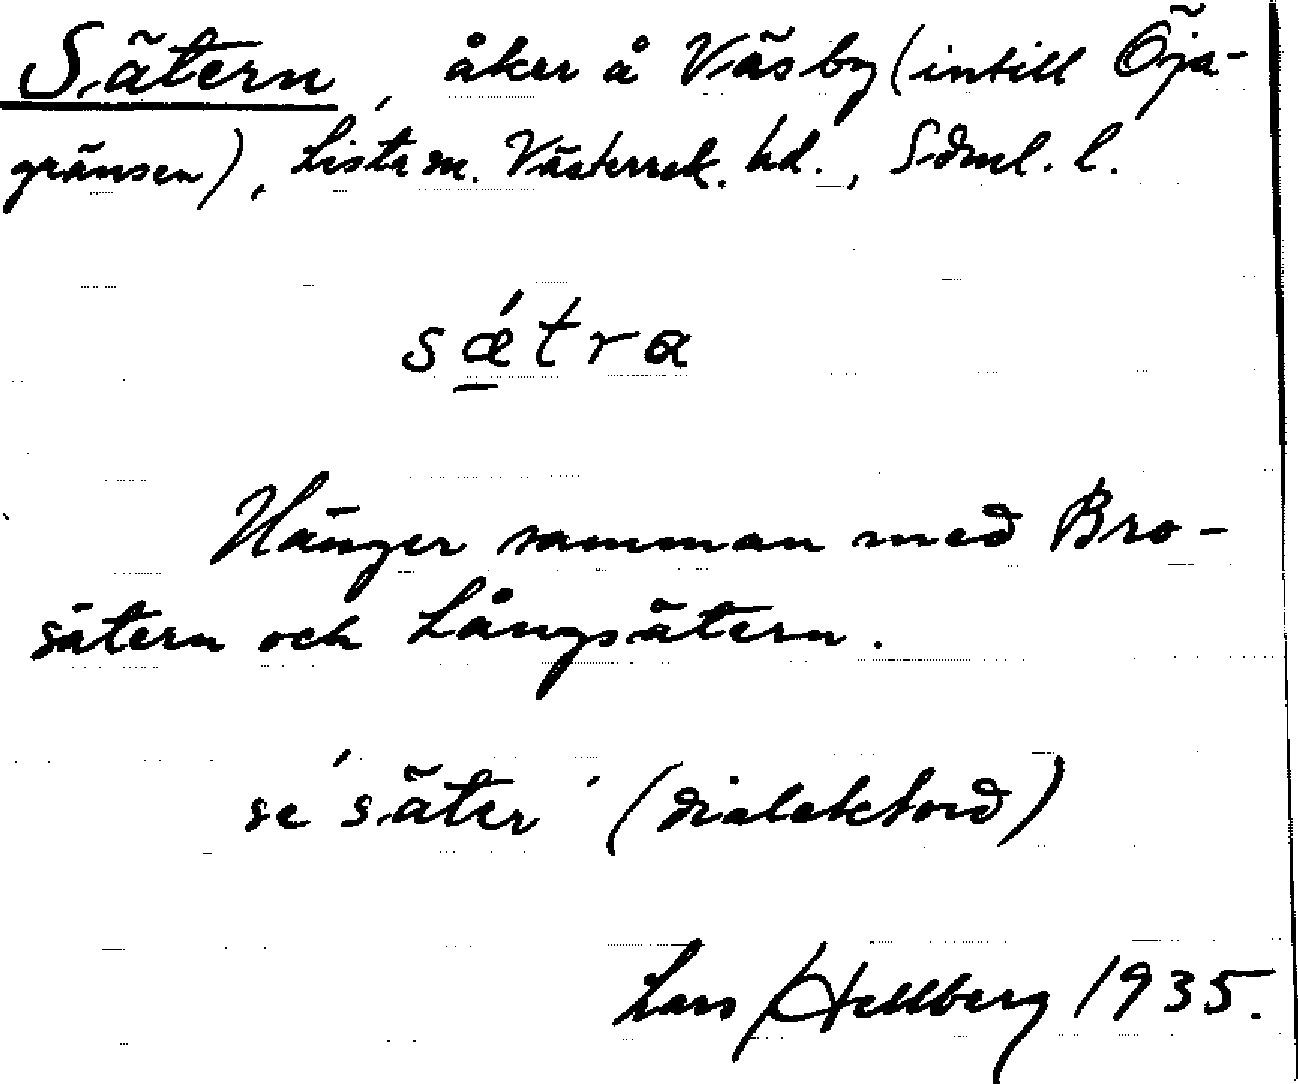 Sätern, åker å Väsby (intill Öja-
gränsen), Lista sn. Västerrek. hd., Sdml. l.
sǽtra
Hänger samman med Bro-
sätern och Långsätern.
se ´säter´ (dialektord)
Lars Hellberg 1935.